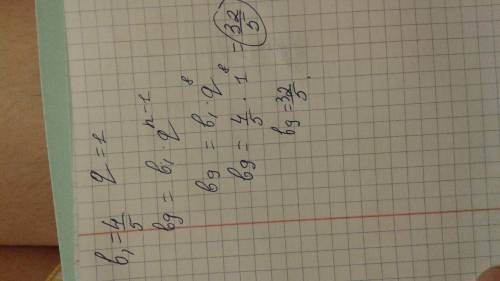 b₁ = 4/5 q = 1
b₉ = b₁ · qⁿ⁻¹
b₉ = b₁ · q⁸
b₉ = 4/5 · 1⁸ = 32/5
b₉ = 32/5.